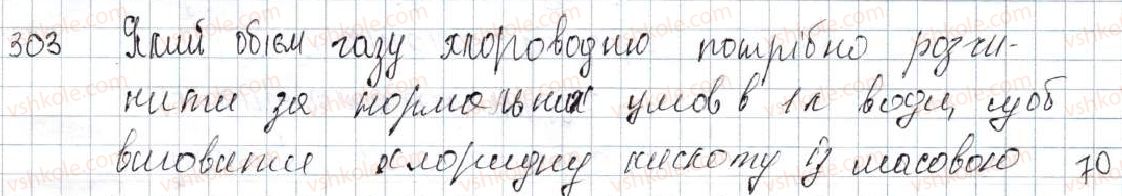 303 Який об'єм газу хлороводню потрібно розчи-
нити за нормальних умов в 1 л води, щоб
виготовити хлоридну кислоту із масовою 70